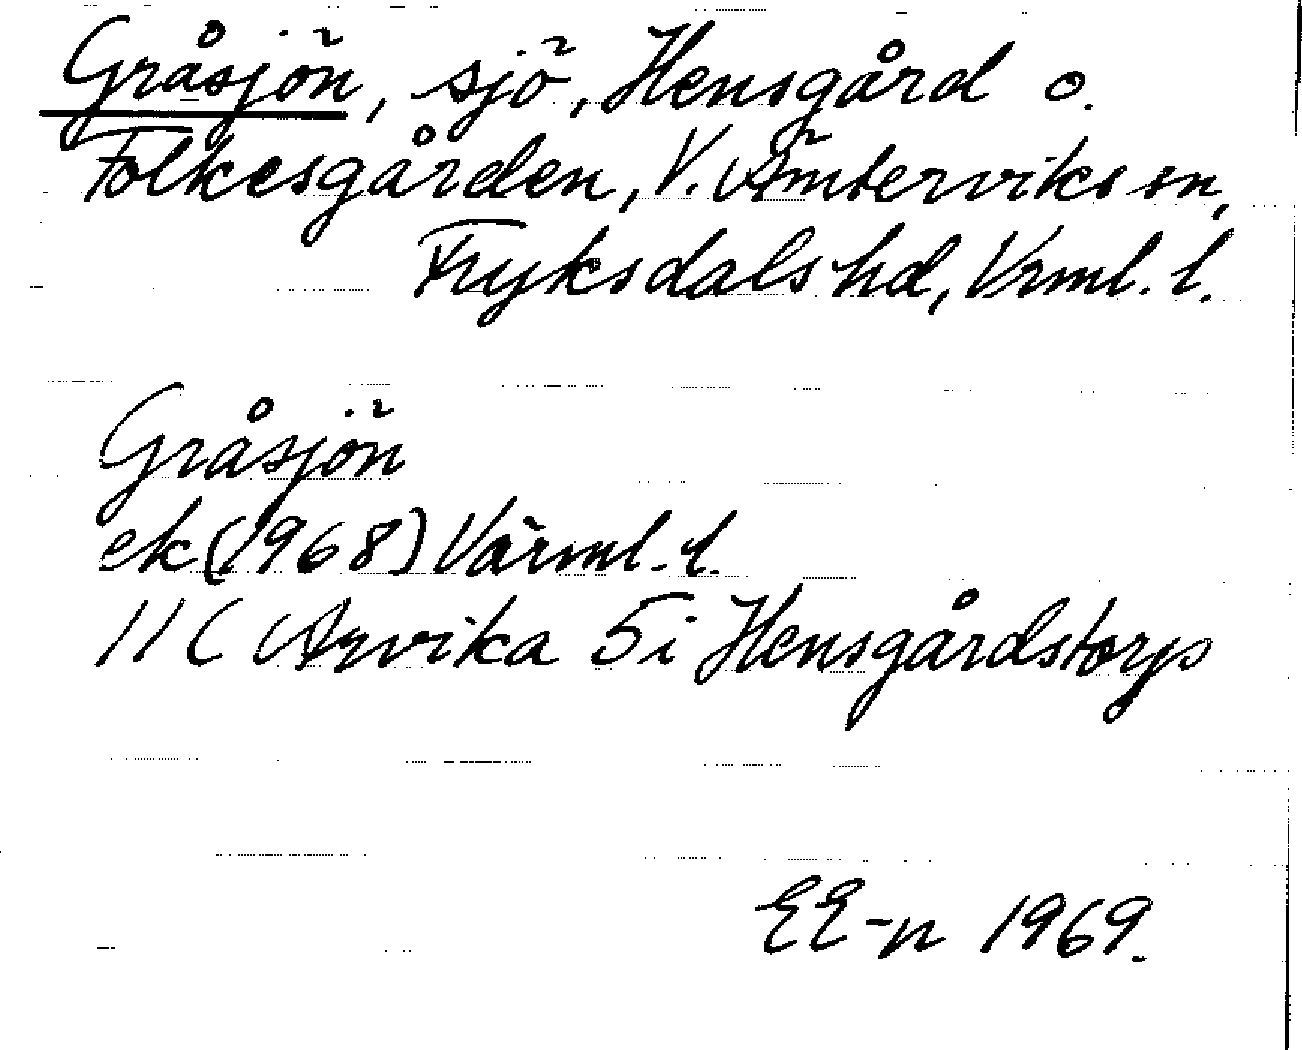 Gråsjön, sjö, Hensgård o.
Folkesgården, V. Ämterviks sn,
Fryksdals hd, Vrml. l.
Gråsjön
ek (1968) Värml. l.
11C Arvika 5i Hensgårdstorp
EE-n 1969.